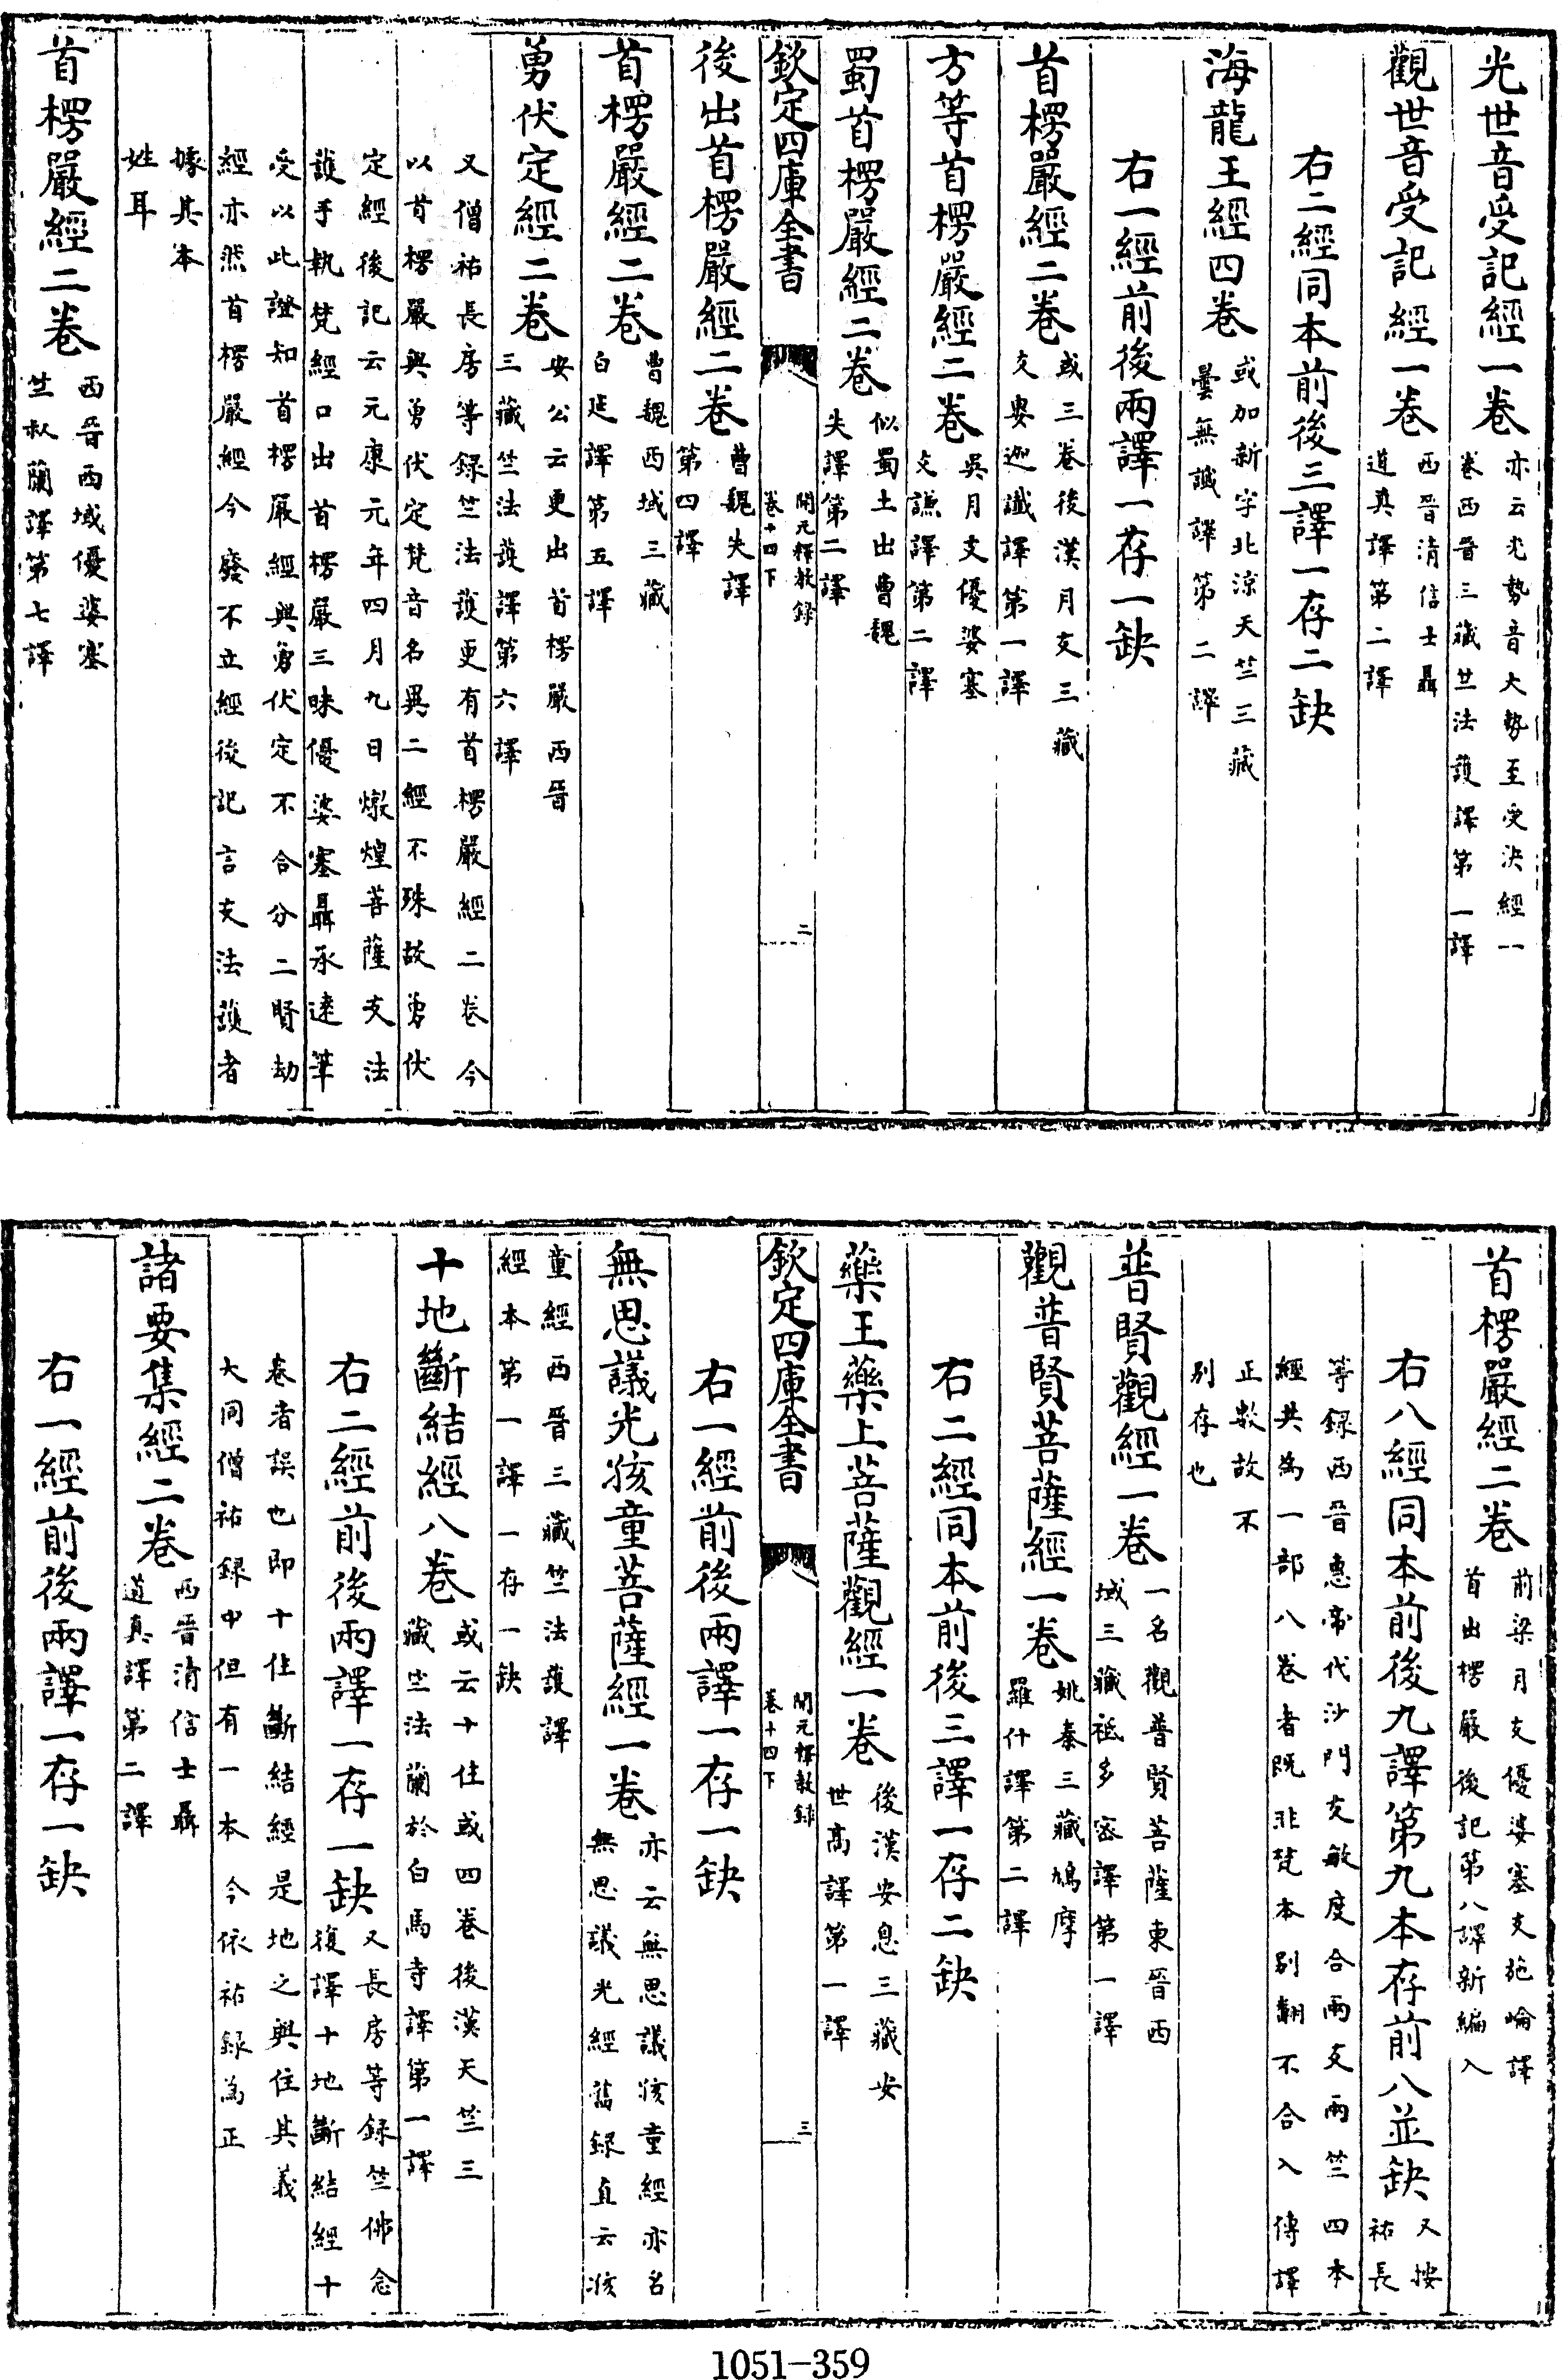 光世音受記經一卷亦云光勢音大勢至受決經一
卷西晉三藏竺法護譯第一譯
觀世音受記經一卷西晉清信士聶
道真譯第二譯
右二經同本前後三譯一存二缺
海龍王經四卷或加新字北涼天竺三藏
曇無讖譯第二譯
右一經前後兩譯一存一缺
首楞嚴經二卷或三卷後漢月支三藏
支婁迦讖譯第一譯
方等首楞嚴經二卷吳月支優婆塞
支謙譯第二譯
蜀首楞嚴經二卷似蜀土出曹魏
失譯第二譯
欽定四庫全書
開元釋教録
卷十四下
二
後出首楞嚴經二卷曹魏失譯
第四譯
首楞嚴經二卷曹魏西域三藏
白延譯第五譯
勇伏定經二卷安公云更出首楞嚴西晉
三藏竺法護譯第六譯
又僧祐長房等録竺法護更有首楞嚴經二卷今
以首楞嚴與勇伏定梵音名異二經不殊故勇伏
定經後記云元康元年四月九日燉煌菩薩支法
護手執梵經口出首楞嚴三昧優婆塞聶承遠筆
受以此證知首楞嚴經與勇伏定不合分二賢劫
經亦然首楞嚴經今廢不立經後記言支法護者
據其本
姓耳
首楞嚴經二卷西晉西域優婆塞
竺叔蘭譯第七譯
首楞嚴經二卷前梁月支優婆塞支施崘譯
首出楞嚴後記第八譯新編入
右八經同本前後九譯第九本存前八並缺又按
祐長
等録西晉惠帝代沙門支敏度合兩支兩竺四本
經共為一部八卷者既非梵本別翻不合入傳譯
正數故不
別存也
普賢觀經一卷一名觀普賢菩薩東晉西
域三藏祇多宻譯第一譯
觀普賢菩薩經一卷姚秦三藏鳩摩
羅什譯第二譯
右二經同本前後三譯一存二缺
藥王藥上菩薩觀經一卷後漢安息三藏安
世高譯第一譯
欽定四庫全書
開元釋教録
卷十四下
三
右一經前後兩譯一存一缺
無思議光孩童菩薩經一卷亦云無思議孩童經亦名
無思議光經舊録直云孩
童經西晉三藏竺法護譯
經本第一譯一存一缺
十地斷結經八卷或云十住或四卷後漢天竺三
藏竺法蘭於白馬寺譯第一譯
右二經前後兩譯一存一缺又長房等録竺佛念
復譯十地斷結經十
卷者誤也即十住斷結經是地之與住其義
大同僧祐録中但有一本今依祐録為正
諸要集經二卷西晉清信士聶
道真譯第二譯
右一經前後兩譯一存一缺
1051-359